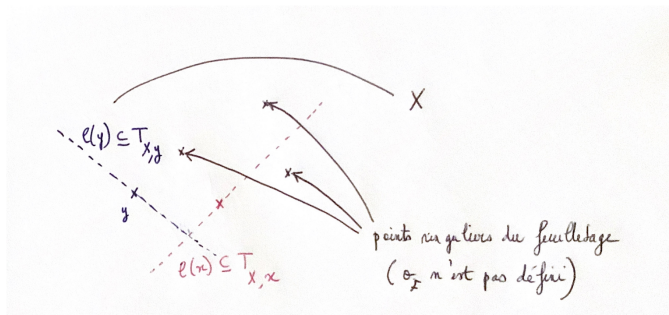 X
ℓ(y) ⊆ T_{X,y}
y
ℓ(x) ⊆ T_{X,x}
points singuliers du feuilletage
(σ_I n'est pas défini)